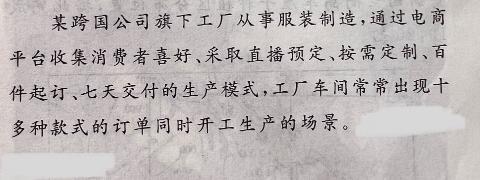 某跨国公司旗下工厂从事服装制造,通过电商
平台收集消费者喜好、采取直播预定、按需定制、百
件起订、七天交付的生产模式,工厂车间常常出现十
多种款式的订单同时开工生产的场景。